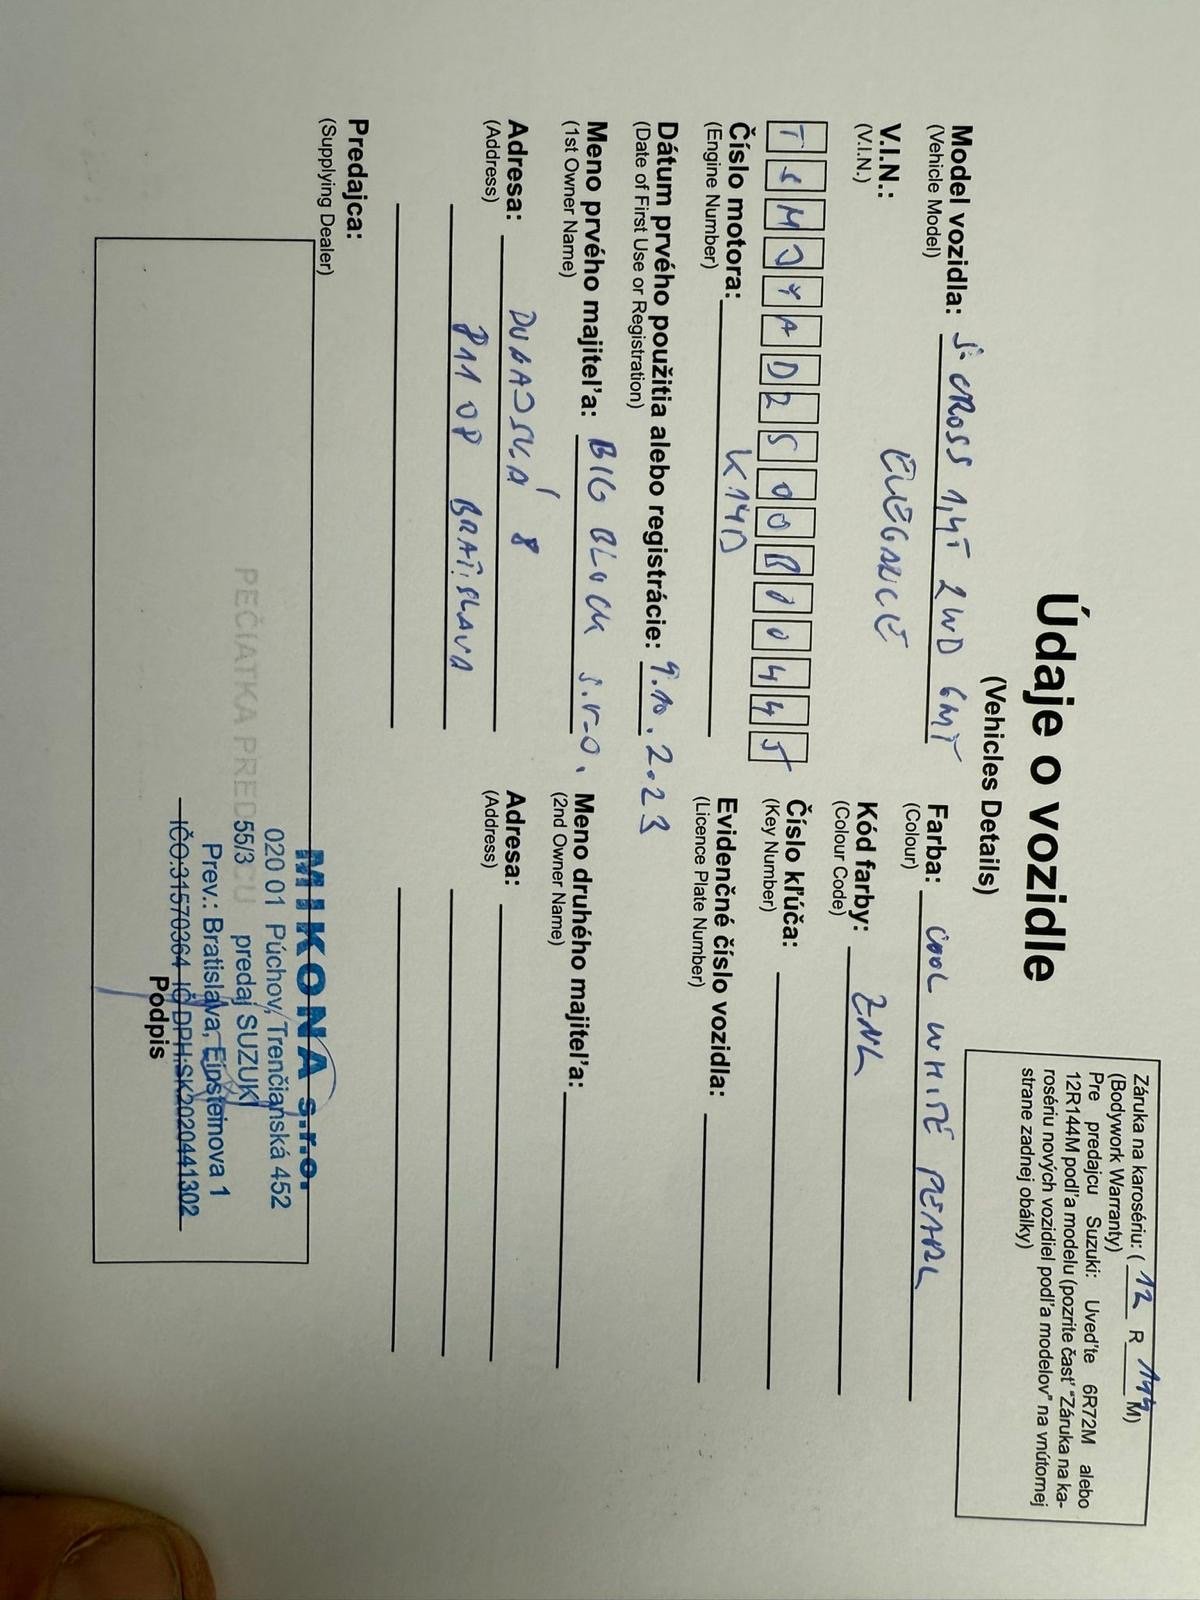 Údaje o vozidle
(Vehicles Details)
Záruka na karosériu: ( 12 R 144 M)
(Bodywork Warranty)
Pre predajcu Suzuki: Uveďte 6R72M alebo
12R144M podľa modelu (pozrite časť "Záruka na ka-
rosériu nových vozidiel podľa modelov" na vnútornej
strane zadnej obálky)
Model vozidla: S-CROSS 1,4T 2WD 6MT
(Vehicle Model)
ELEGANCE
V.I.N.:
(V.I.N.)
Číslo motora: K14D
(Engine Number)
Dátum prvého použitia alebo registrácie: 9.10.2023
(Date of First Use or Registration)
Meno prvého majiteľa: BIG BLOCK s.r.o.
(1st Owner Name)
Adresa: DUNAJSKÁ 8
(Address)
811 08 BRATISLAVA
Farba: COOL WHITE PEARL
(Colour)
Kód farby: ZNL
(Colour Code)
Číslo kľúča:
(Key Number)
Evidenčné číslo vozidla:
(Licence Plate Number)
Meno druhého majiteľa:
(2nd Owner Name)
Adresa:
(Address)
Predajca:
(Supplying Dealer)
PEČIATKA PREDAJCU
MIKONA s.r.o.
020 01 Púchov, Trenčianska 452
55/3 predaj SUZUKI
Prev.: Bratislava, Einsteinova 1
IČO:31570364 IČ DPH:SK2020441302
Podpis